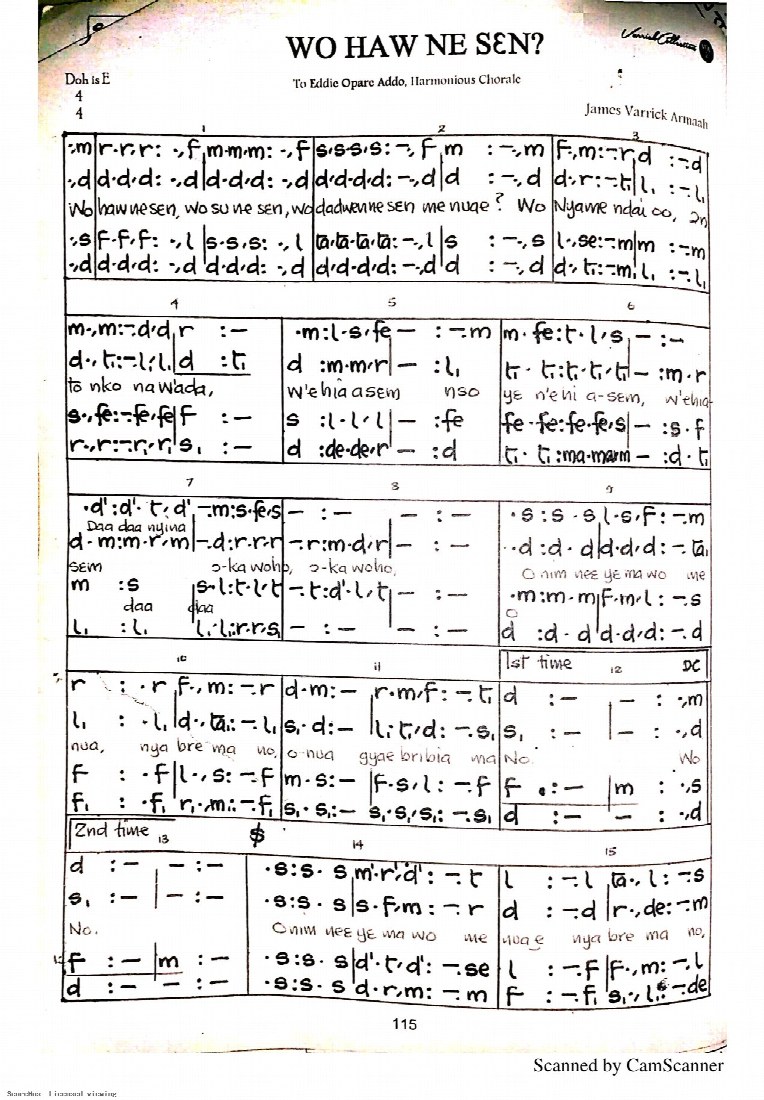 WO HAW NE SƐN?
Doh is E
4
4
To Eddie Opare Addo, Harmonious Chorale
James Varrick Armaah
1 2 3
:m|r·r·r: ·,f|m·m·m: ·,f|s·s·s·s: –,f|m :–,m|f,m:–,r|d :–,d
·,d|d·d·d: ·,d|d·d·d: ·,d|d·d·d·d: –,d|d :–,d|d,r:–,t₁|l₁ :–,l₁
Wo haw ne sen, wo su ne sen, wo dadwen ne sen me nua e? Wo Nyame ndai oo, ɔn
·,s|f·f·f: ·,l|s·s·s: ·,l|ta·ta·ta·ta: –,l|s :–,s|l,se:–,m|m :–,m
·,d|d·d·d: ·,d|d·d·d: ·,d|d·d·d·d: –,d|d :–,d|d,t₁:–,m₁|l₁ :–,l₁
4 5 6
m·,m:–,d·d,r :– ·m:l·s,fe|– :–,m m·fe:t·l,s|– :–
d·,t₁:–,l₁·l₁|d :t₁ d :m·m,r|– :l₁ t₁·t₁:t₁·t₁,t₁|– :m·r
to nko na wada, w'ehia asem nso ye n'ehi a-sem, w'ehia-
s·,fe:–,fe·fe|f :– s :l·l,l|– :fe fe·fe:fe·fe,s|– :s·f
r·,r:–,r·r|s₁ :– d :de·de,r|– :d t₁·t₁:ma·ma,m|– :d·t₁
7 8 9
·d':d'·t,d'|–,m:s,fe,s|– :–|– :–|·s:s·s|l·s,f:–,m
Daa daa nyina
d·m:m·r,m|–,d:r,r,r|–,r:m,d,r|– :–|·d:d·d|d·d,d:–,ta₁
sem ɔ-ka woho, ɔ-ka woho, O nim nee ye ma wo me
m :s |s,l:t,l,t|–,t:d',l,t|– :–|·m:m·m|f·m,l:–,s
daa daa O
l₁ :l₁ |l₁,l₁:r,r,s|– :–|– :–|d :d·d|d·d,d:–,d
1st time DC
10 11 12
r : ·r|f·,m:–,r|d·m:–|r·m,f:–,t₁|d :–|– :·,m
l₁ : ·l₁|d·,ta₁:–,l₁|s₁·d:–|l₁·t₁,d:–,s₁|s₁ :–|– :·,d
nua, nya bre ma no, o nua gyae bribia ma No. Wo
f : ·f|l·,s:–,f|m·s:–|f·s,l:–,f|f :–|m :·,s
f₁ : ·f₁|r₁·,m₁:–,f₁|s₁·s₁:–|s₁·s₁,s₁:–,s₁|d :–|– :·,d
2nd time 13 $ 14 15
d :–|– :–|·s:s·s|m'·r',d':–,t|l :–,l|ta·,l:–,s
s₁ :–|– :–|·s:s·s|s·f,m:–,r|d :–,d|r·,de:–,m
No. O nim nee ye ma wo me nua e nya bre ma no,
f :–|m :–|·s:s·s|d'·t,d':–,se|l :–,f|f·,m:–,l
d :–|– :–|·s:s·s|d·r,m:–,m|f :–,f₁|s₁·,l₁:–,de
115
Scanned by CamScanner